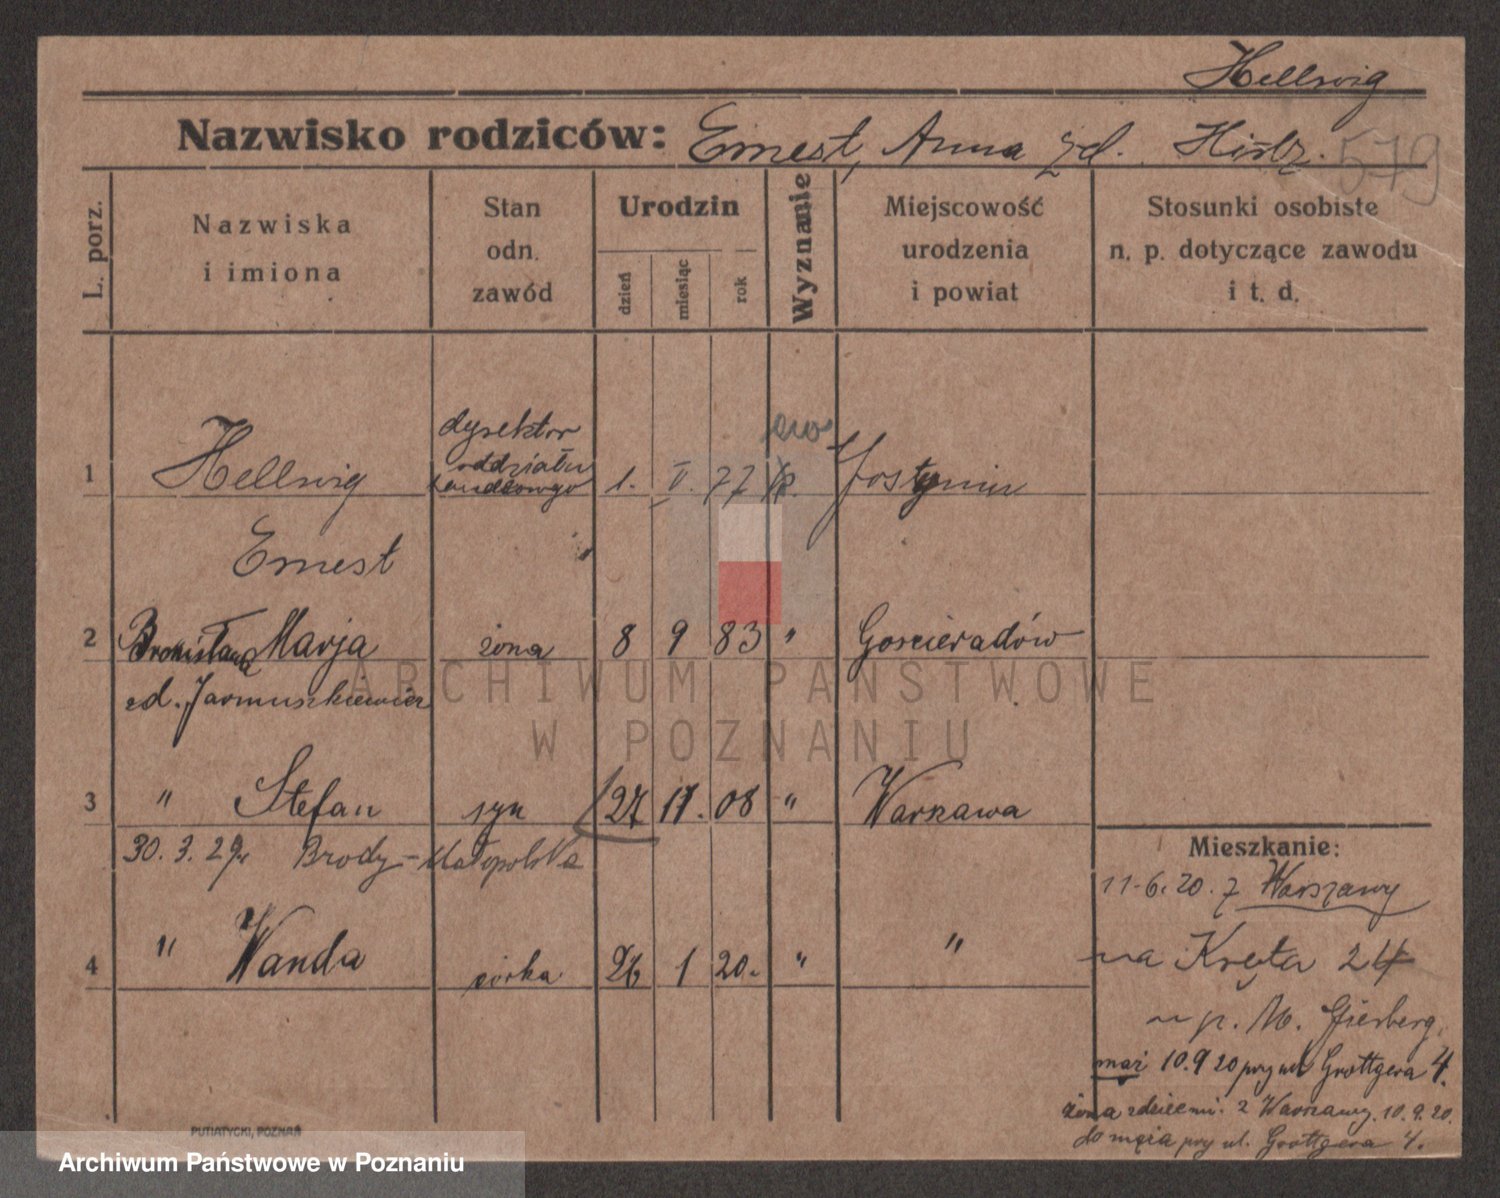 Hellwig
Nazwisko rodziców: Ernest, Anna zd.
579
L. porz.
Nazwiska
i imiona
Stan
odn.
zawód
Urodzin
dzień
miesiąc
rok
Wyznanie
Miejscowość
urodzenia
i powiat
Stosunki osobiste
n. p. dotyczące zawodu
i t. d.
ew
dyrektor
oddziału
handlowego
1 Hellwig 1. II. 77
Ernest "
2 Bronisława Marja żona 8 9 83 " Goscieradów
zd. Jarmuszkiewicz
3 " Stefan syn 27 11. 08 " Warszawa
30. 3. 29r Brody - Małopolska
4 " Wanda córka 26 1 20. " "
Mieszkanie:
11.6.20. z Warszawy
na Kręta 24
p. M.
mąż 10.9 20 przy ul Grottgera 4.
żona z dziećmi. z Warszawy. 10.9.20.
do męża przy ul. Grottgera 4.
PUTIATYCKI, POZNAŃ
ARCHIWUM PAŃSTWOWE
W POZNANIU
Archiwum Państwowe w Poznaniu